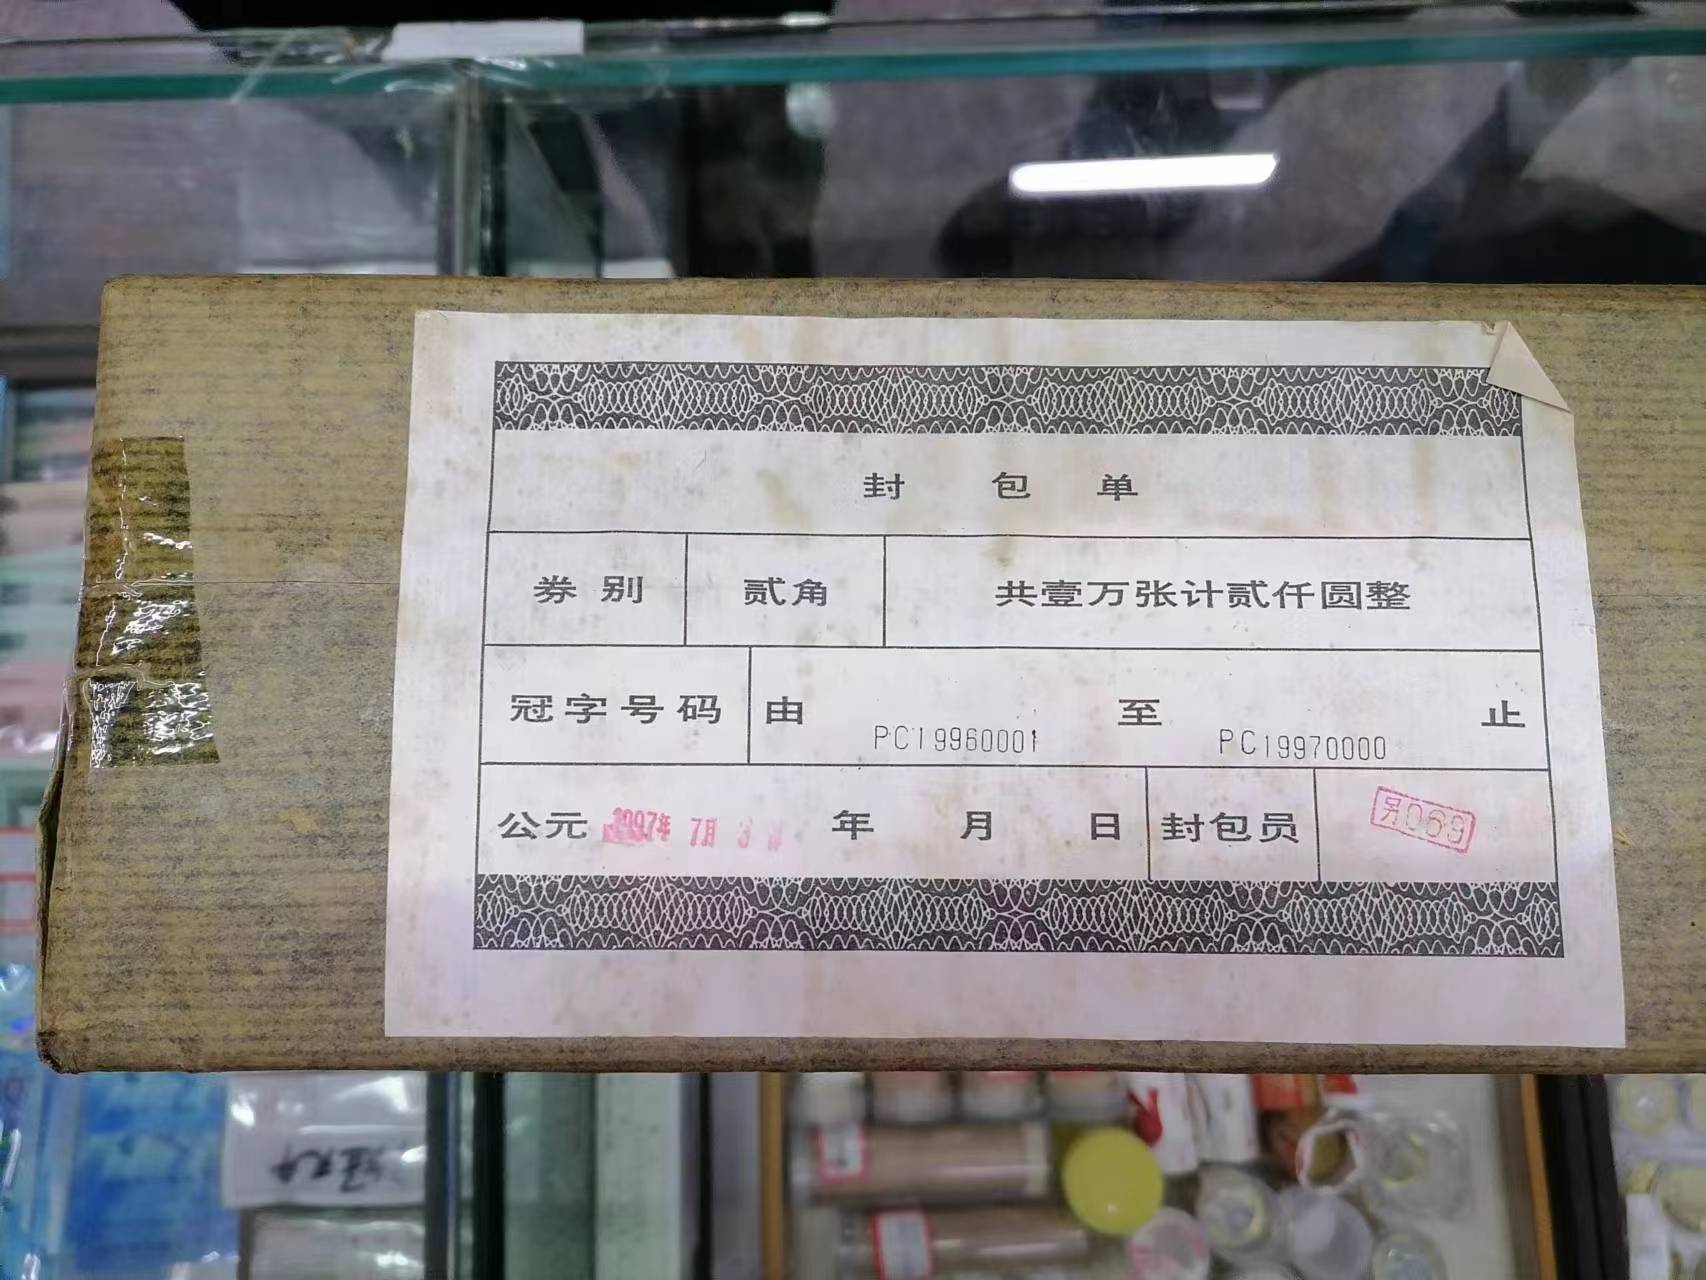 封包单
券别 贰角 共壹万张计贰仟圆整
冠字号码 由 PC19960001 至 PC19970000 止
公元 1997年 7月 年 月 日 封包员 069